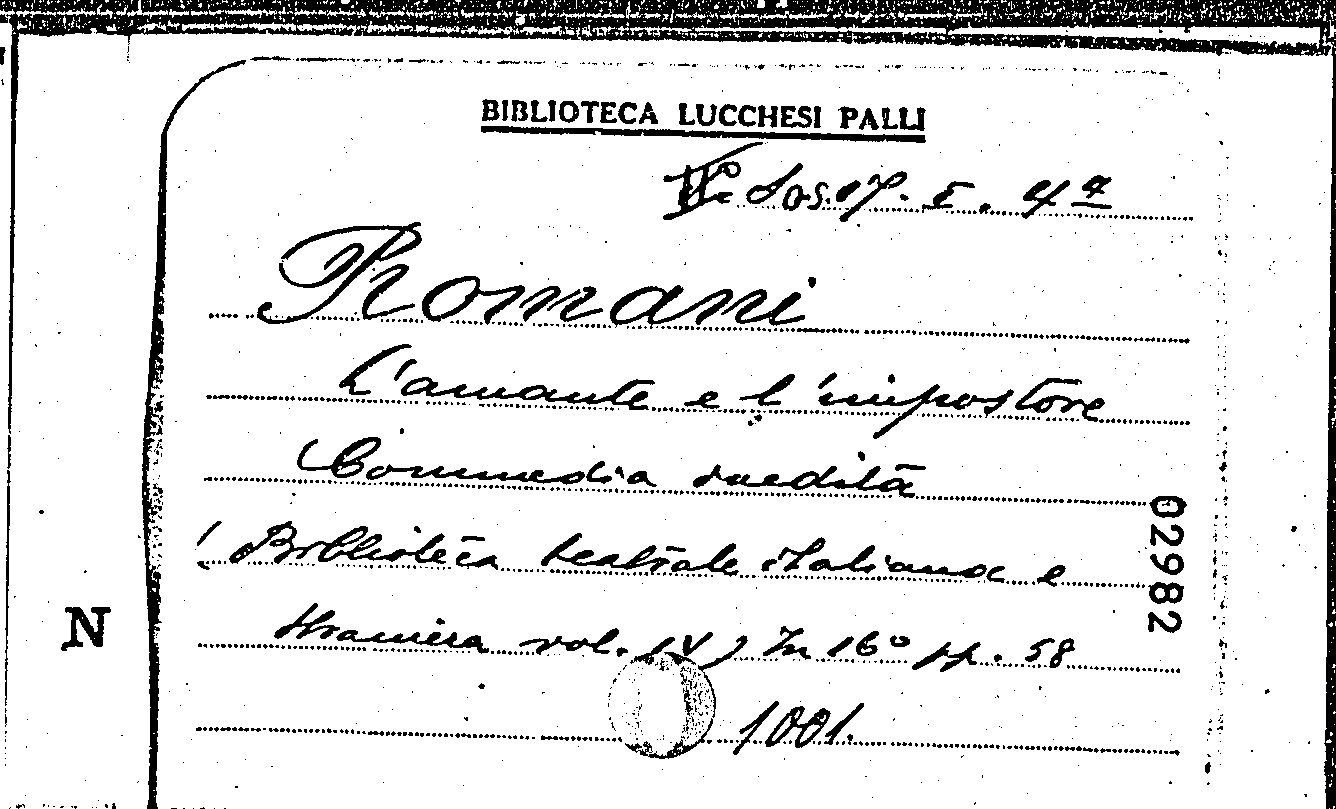 BIBLIOTECA LUCCHESI PALLI
I. 4
Romani
L'amante e l'impostore
Commedia inedita
(Biblioteca teatrale italiana e
straniera vol. IV) In 16° pp. 58
1001.
02982
N